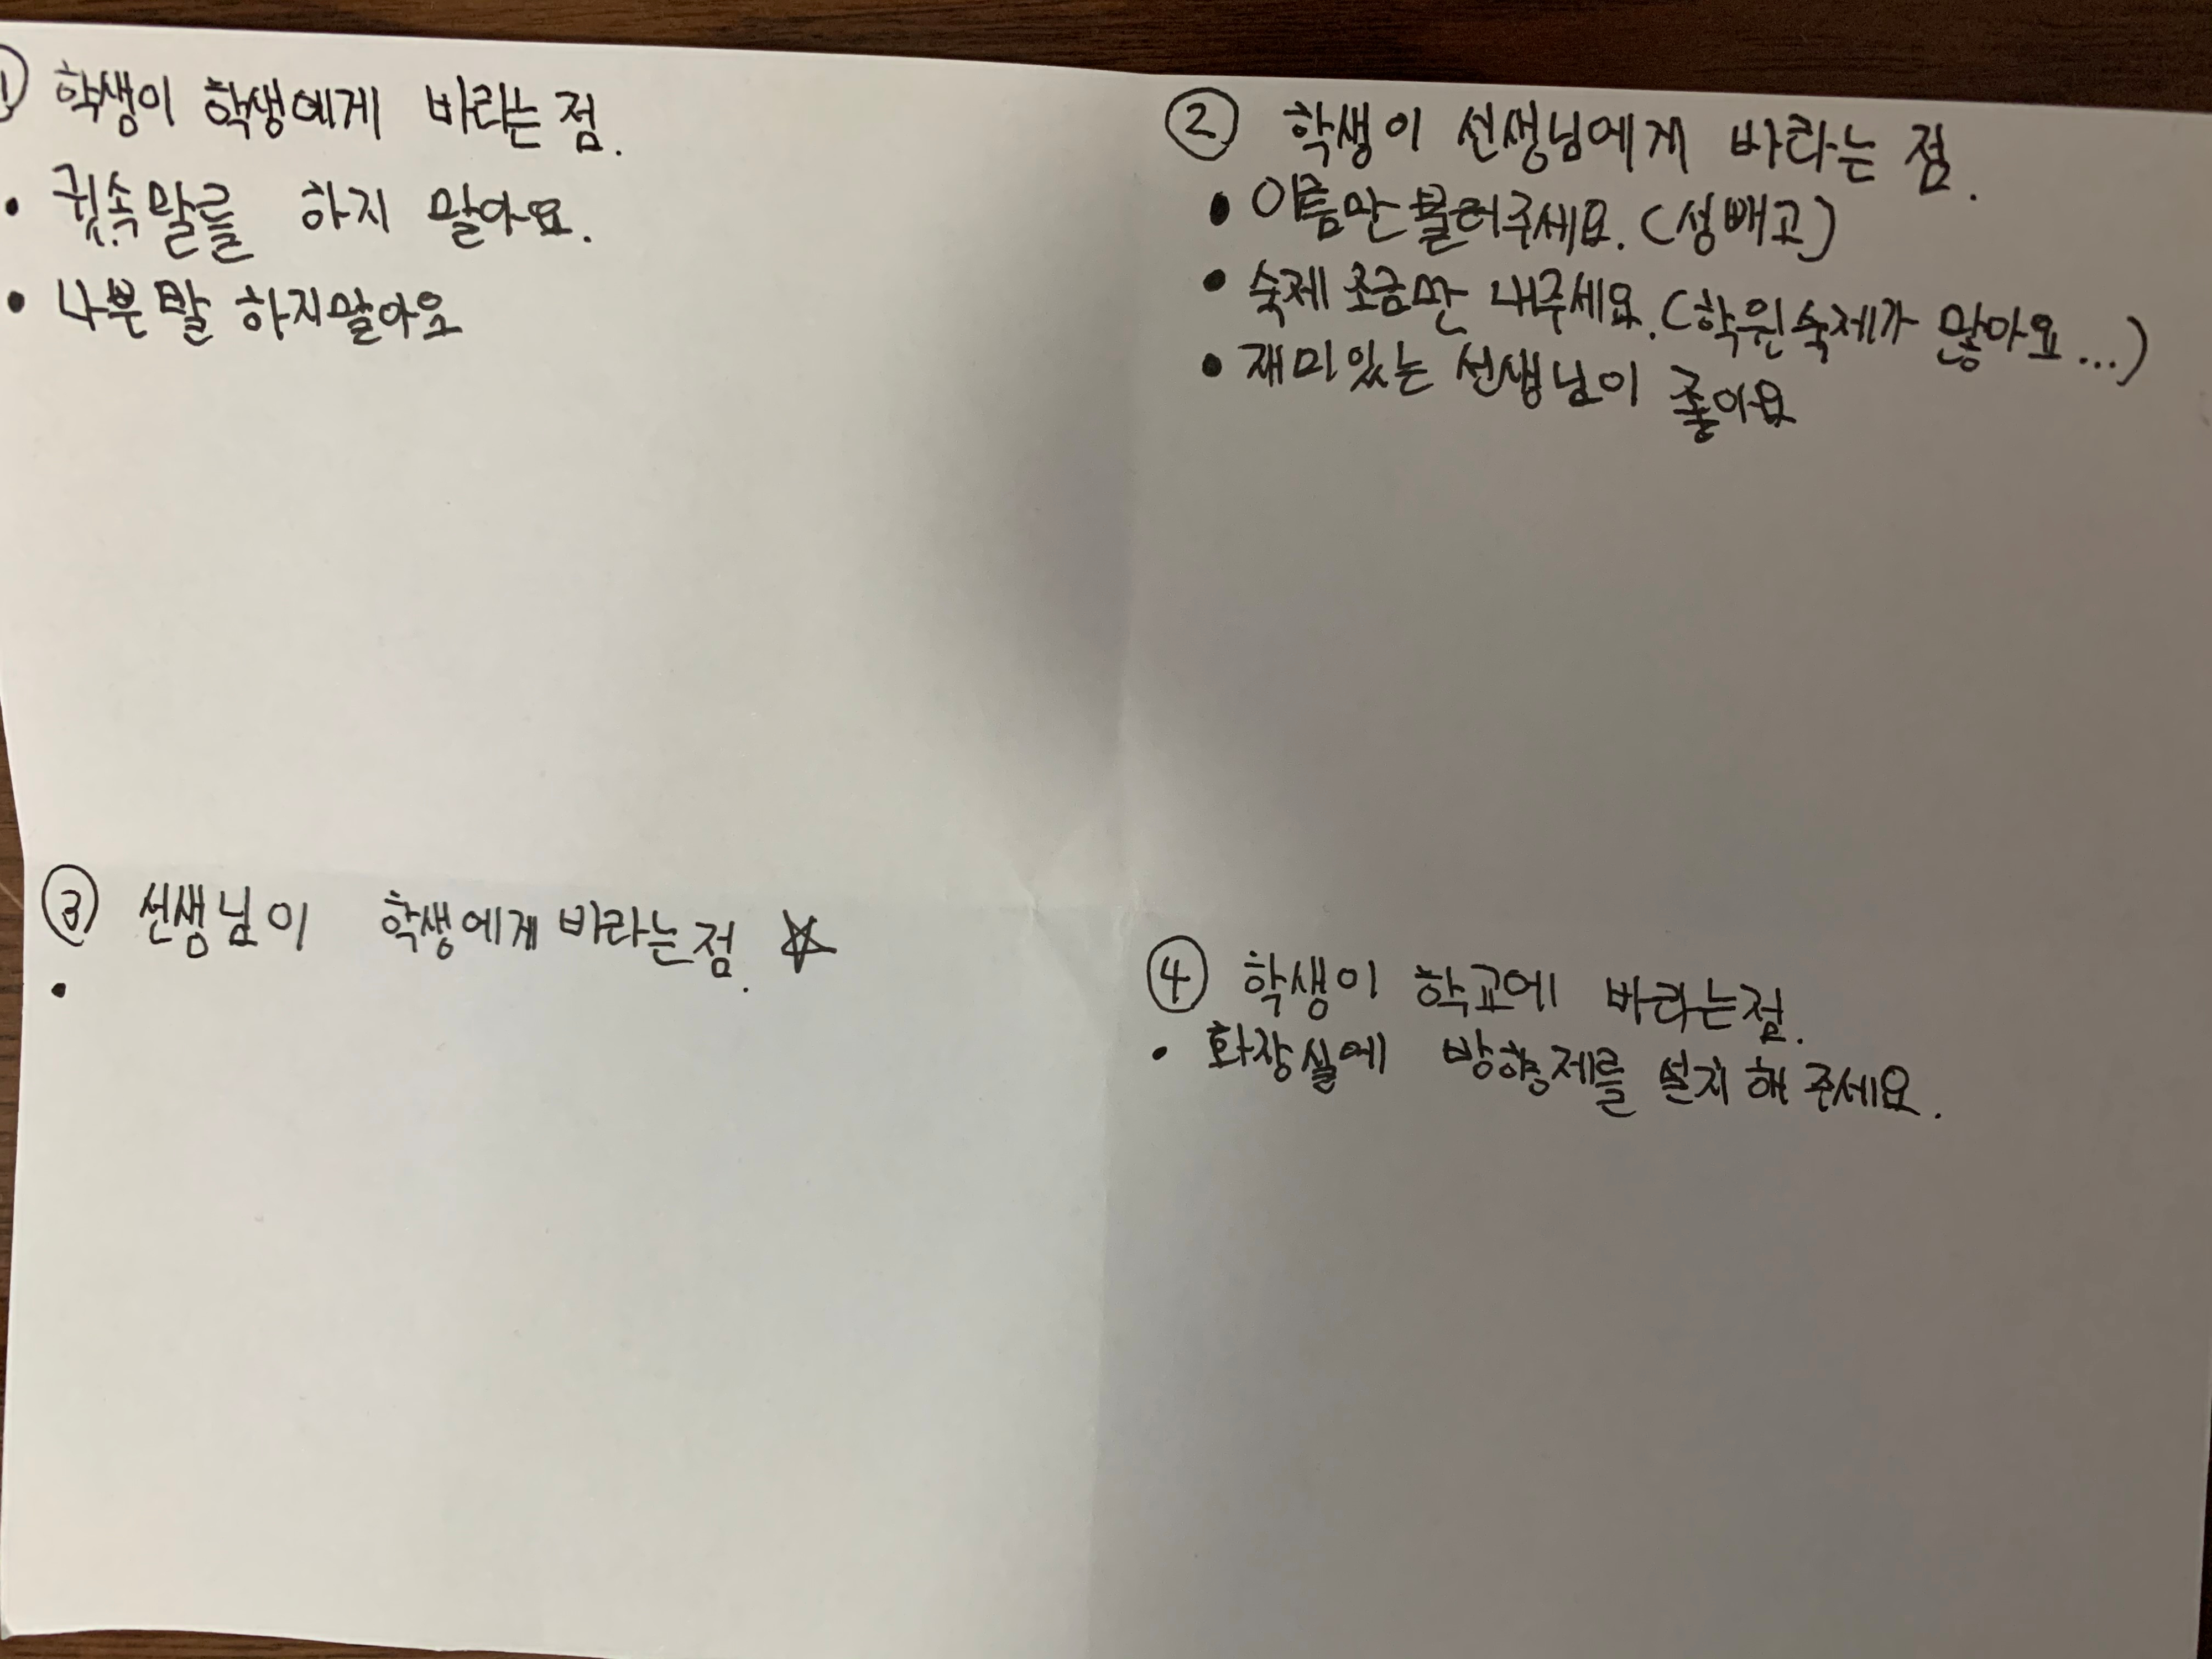 ① 학생이 학생에게 바라는 점.
• 귓속말를 하지 말아요.
• 나뿐말 하지말아요
② 학생이 선생님에게 바라는 점.
• 이름만 불러주세요. (성빼고)
• 숙제 조금만 내주세요. (학원숙제가 많아요...)
• 재미있는 선생님이 좋아요
③ 선생님이 학생에게 바라는점. ☆
•
④ 학생이 학교에 바라는점.
• 화장실에 방향제를 설치해 주세요.